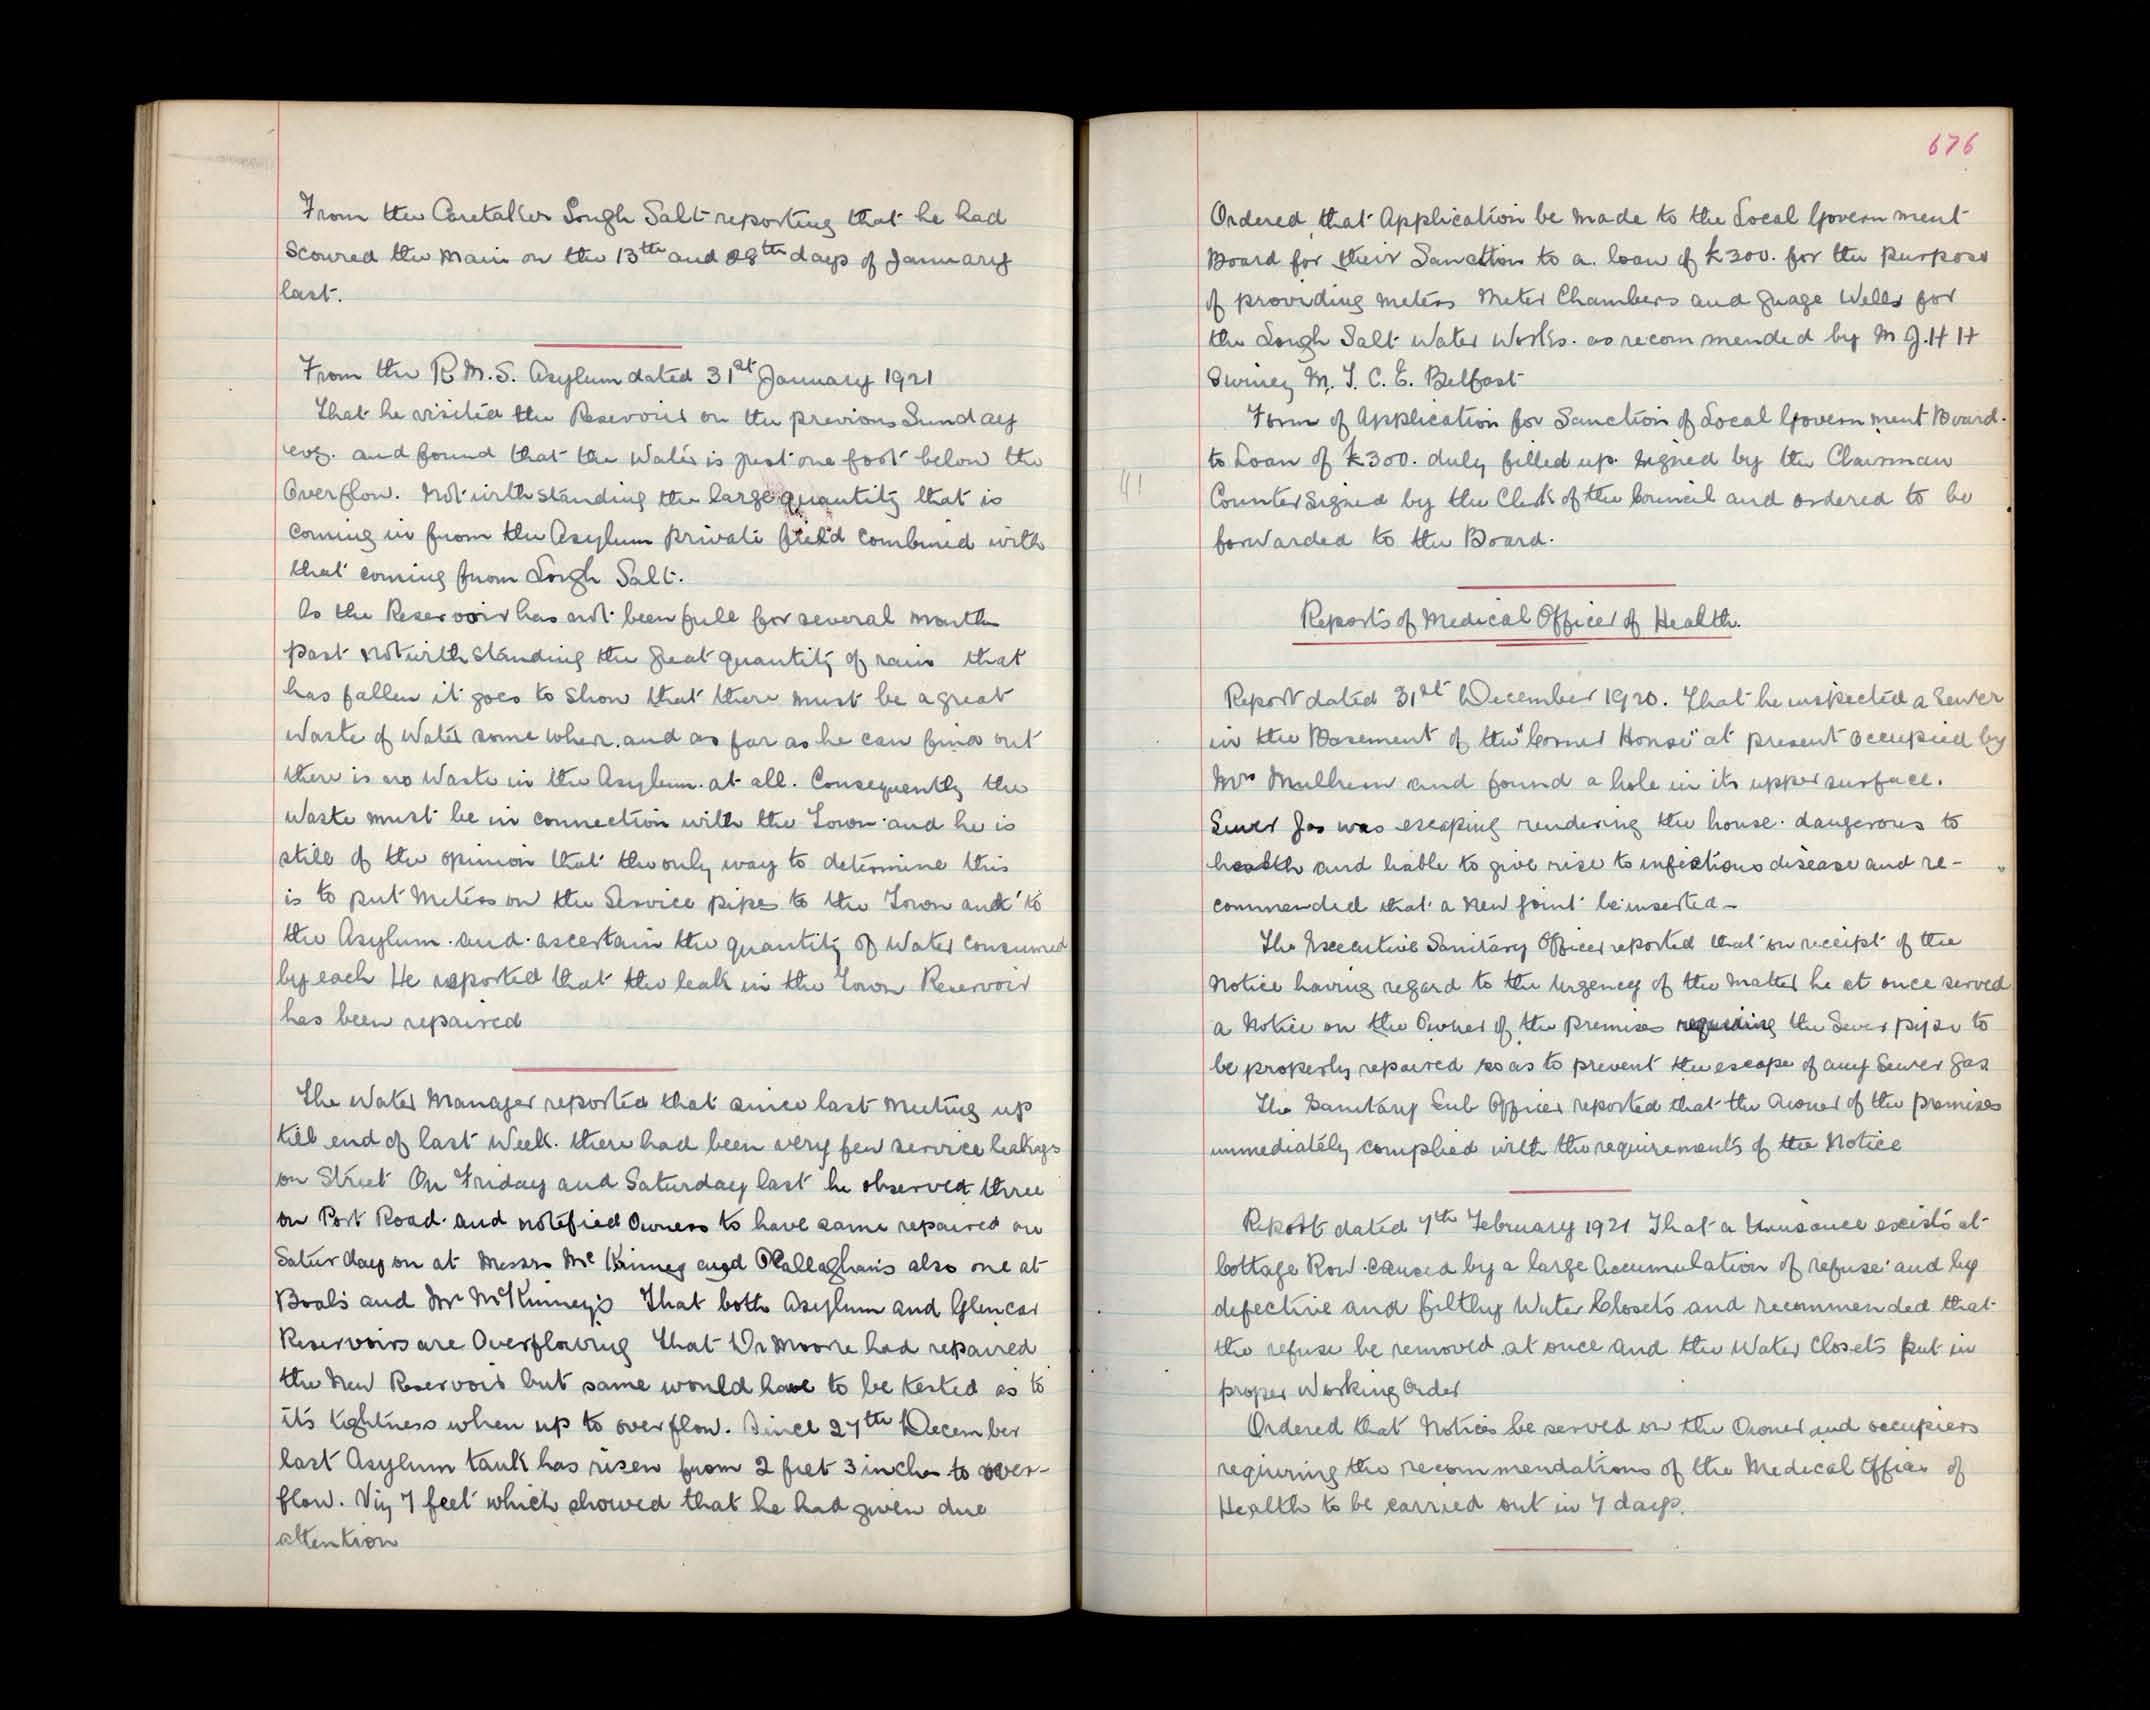 From the Caretaker Lough Salt reporting that he had
scoured the main on the 13th and 28th days of January
last.
From the R. M. S. Asylum dated 31st January 1921
That he visited the Reservoir on the previous Sunday
evg. and found that the Water is just one foot below the
Overflow. Notwithstanding the large quantity that is
coming in from the Asylum private field combined with
that coming from Lough Salt.
As the Reservoir has not been full for several months
past notwithstanding the great quantity of rain that
has fallen it goes to show that there must be a great
Waste of Water some where. and as far as he can find out
there is no Waste in the Asylum. at all. Consequently the
Waste must be in connection with the Town and he is
still of the opinion that the only way to determine this
is to put Meters on the Service pipes to the Town and to
the Asylum. and ascertain the quantity of Water consumed
by each He reported that the leak in the Town Reservoir
has been repaired
The Water Manager reported that since last Meeting up
till end of last Week. there had been very few service leakages
on Street On Friday and Saturday last he observed three
on Port Road. and notified Owners to have same repaired on
Saturday on at Messrs McKinney and O'Callaghan's also one at
Boal's and Mr McKinney's That both Asylum and Glencar
Reservoirs are Overflowing That Dr Moore had repaired
the New Reservoir but same would have to be tested as to
it's tightness when up to overflow. Since 27th December
last Asylum tank has risen from 2 feet 3 inches to over-
flow. Viz 7 feet which showed that he had given due
attention
676
Ordered that Application be made to the Local Government
Board for their Sanction to a loan of £300. for the purpose
of providing meters Meter Chambers and guage Wells for
the Lough Salt Water Works. as recommended by Mr J. H H
Swiney M. I. C. E. Belfast
Form of Application for Sanction of Local Government Board.
to Loan of £300. duly filled up. signed by the Chairman
Counter signed by the Clerk of the Council and ordered to be
forwarded to the Board.
Reports of Medical Officer of Health.
Report dated 31st December 1920. That he inspected a Sewer
in the Basement of the "Corner House" at present occupied by
Mrs Mulhern and found a hole in its upper surface.
Sewer Gas was escaping rendering the house dangerous to
health and liable to give rise to infectious disease and re-
commended that a New joint be inserted -
The Executive Sanitary Officer reported that on receipt of the
Notice having regard to the Urgency of the Matter he at once served
a Notice on the Owner of the premises requiring the Sewer pipe to
be properly repaired so as to prevent the escape of any Sewer Gas
The Sanitary Sub Officer reported that the Owner of the premises
immediately complied with the requirements of the Notice
Report dated 7th February 1921 That a Nuisance exists at
Cottage Row. caused by a large Accumulation of refuse and by
defective and filthy Water Closets and recommended that
the refuse be removed at once and the Water Closets put in
proper Working Order
Ordered that Notices be served on the Owner and occupiers
requiring the recommendations of the Medical Officer of
Health to be carried out in 7 days.